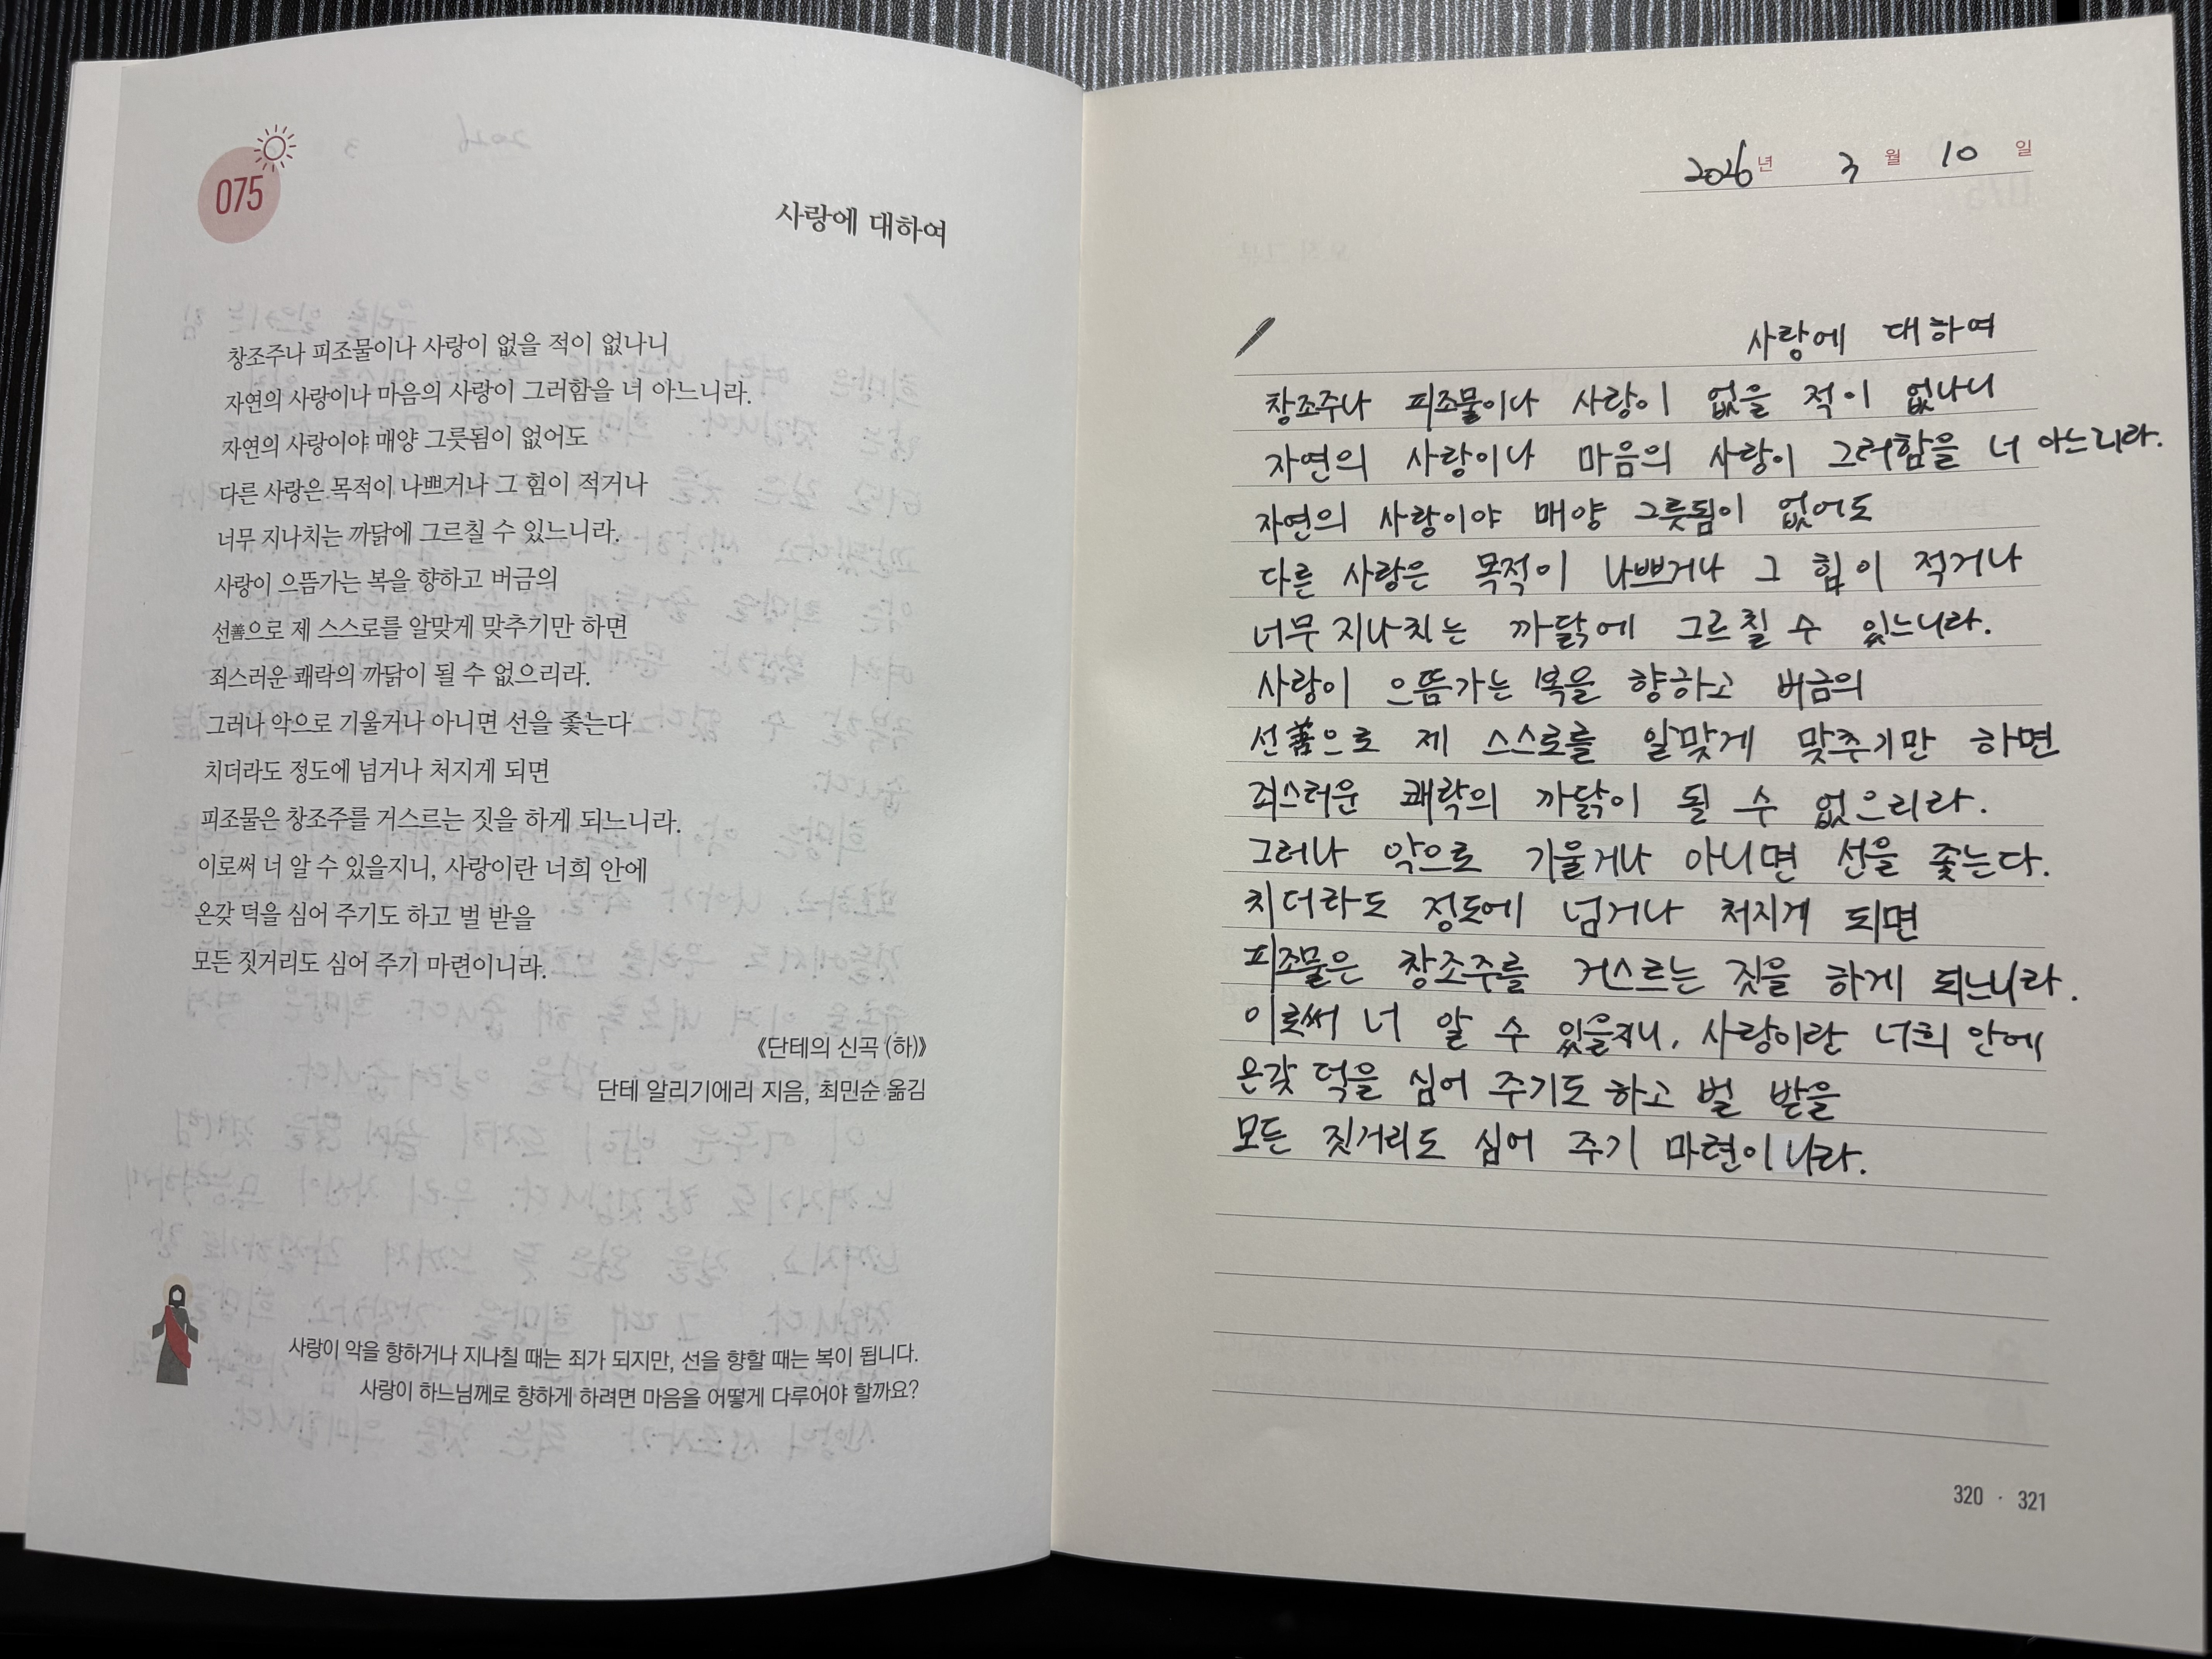 075
사랑에 대하여
창조주나 피조물이나 사랑이 없을 적이 없나니
자연의 사랑이나 마음의 사랑이 그러함을 너 아느니라.
자연의 사랑이야 매양 그릇됨이 없어도
다른 사랑은 목적이 나쁘거나 그 힘이 적거나
너무 지나치는 까닭에 그르칠 수 있느니라.
사랑이 으뜸가는 복을 향하고 버금의
선善으로 제 스스로를 알맞게 맞추기만 하면
죄스러운 쾌락의 까닭이 될 수 없으리라.
그러나 악으로 기울거나 아니면 선을 좇는다
치더라도 정도에 넘거나 처지게 되면
피조물은 창조주를 거스르는 짓을 하게 되느니라.
이로써 너 알 수 있을지니, 사랑이란 너희 안에
온갖 덕을 심어 주기도 하고 벌 받을
모든 짓거리도 심어 주기 마련이니라.
《단테의 신곡 (하)》
단테 알리기에리 지음, 최민순 옮김
사랑이 악을 향하거나 지나칠 때는 죄가 되지만, 선을 향할 때는 복이 됩니다.
사랑이 하느님께로 향하게 하려면 마음을 어떻게 다루어야 할까요?
2026년 3월 10일
사랑에 대하여
창조주나 피조물이나 사랑이 없을 적이 없나니
자연의 사랑이나 마음의 사랑이 그러함을 너 아느니라.
자연의 사랑이야 매양 그릇됨이 없어도
다른 사랑은 목적이 나쁘거나 그 힘이 적거나
너무 지나치는 까닭에 그르칠 수 있느니라.
사랑이 으뜸가는 복을 향하고 버금의
선善으로 제 스스로를 알맞게 맞추기만 하면
죄스러운 쾌락의 까닭이 될 수 없으리라.
그러나 악으로 기울거나 아니면 선을 좇는다.
치더라도 정도에 넘거나 처지게 되면
피조물은 창조주를 거스르는 짓을 하게 되느니라.
이로써 너 알 수 있을지니, 사랑이란 너희 안에
온갖 덕을 심어 주기도 하고 벌 받을
모든 짓거리도 심어 주기 마련이니라.
320 · 321